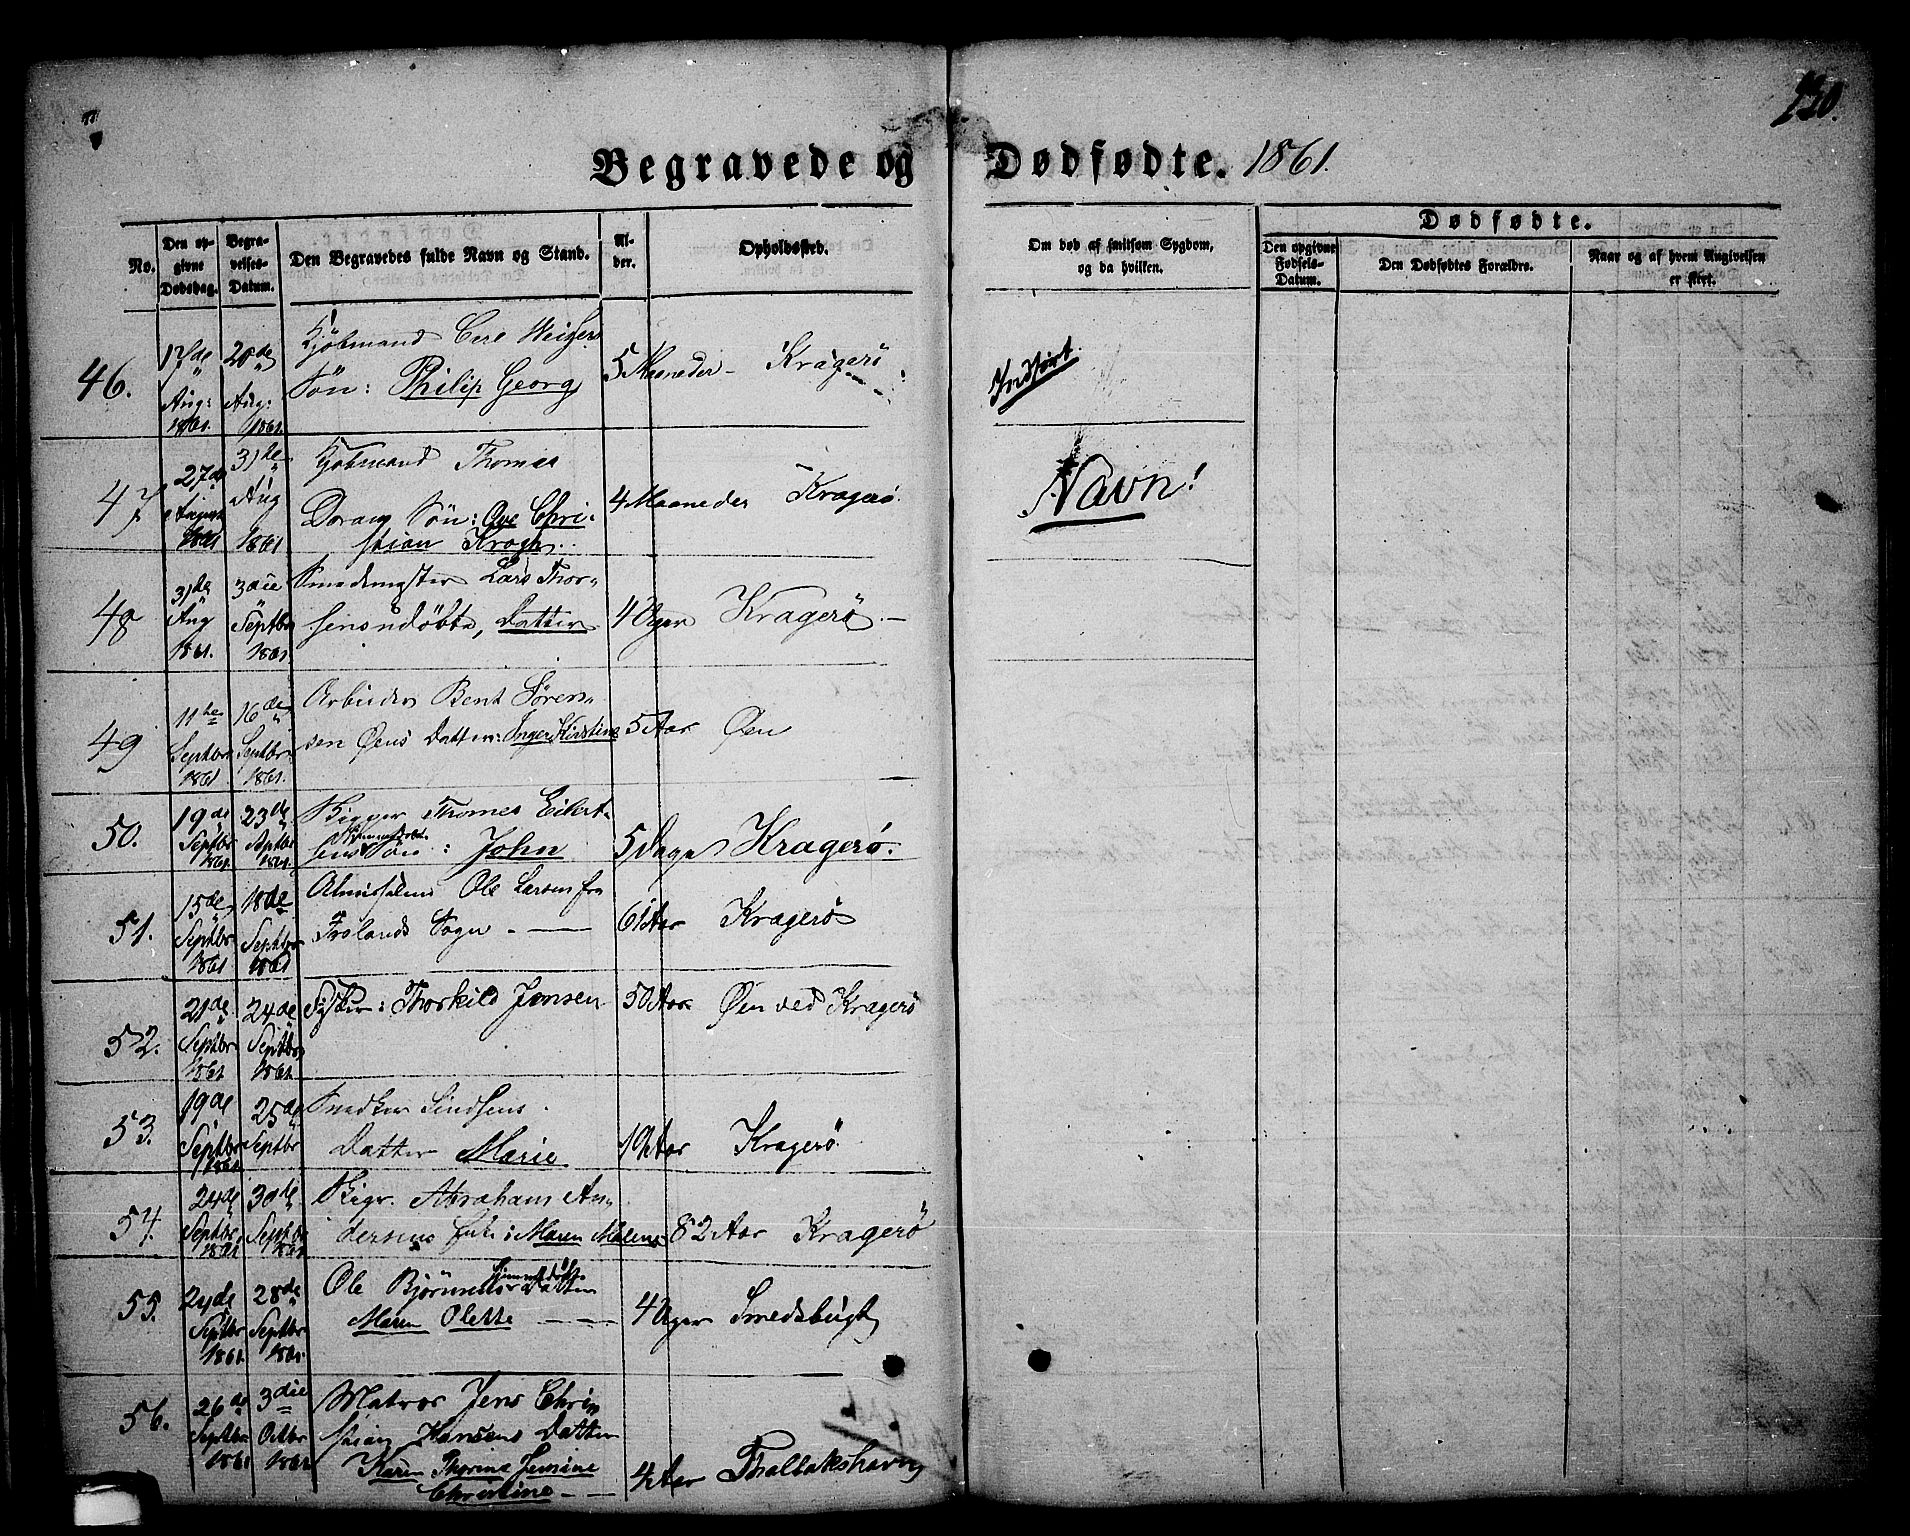 230.
Begravede og Dødfødte. 1861.
No.
Den opgivne Dødsdag.
Begravelses-Datum.
Den Begravedes fulde Navn og Stand.
Alder.
Opholdssted.
Om død af smitsom Sygdom, og da hvilken.
Dødfødte.
Den opgivne Fødsels-Datum.
Den Dødfødtes Forældre.
Naar og af hvem Angivelsen er skeet.
46.
17de Aug: 1861.
20de Aug: 1861.
Kjøbmand Carl Weigers
Søn: Philip Georg
5 Maaneder
Kragerø
Indført
47
27de August 1861
31te Aug 1861
Kjøbmand Thomas
Dorans Søn: Ove Chri-
stian Krogh.
4 Maaneder
Kragerø.
Navn!
48
31te Aug 1861.
3die Septbr 1861.
Smedmester Lars Thor-
sens udøbte, Datter
4 Uger
Kragerø
49
11te Septbr 1861
16de Septbr. 1861.
Arbeider Bent Søren-
sen Øens Datter: Inger Kirstine
5 Aar
Øen
50.
19de Septbr 1861.
23de Septbr 1861.
Rigger Thomas Eilert-
sens hjemmedøbt Søn: John
5 Dage
Kragerø.
51.
15de Septbr 1861
18de Septbr 1861
Ole Larsen fra
Frolands Sogn
61 Aar
Kragerø
52.
21de Septbr 1861
24de Septbr 1861.
Thorkild Jensen
50 Aar
Øen ved Kragerø
53.
19de Septbr 1861
25de Septbr
Snedker Lindsens
Datter Marie
19 Aar
Kragerø
54.
24de Septbr. 1861
30te Septbr 1861
Rigr. Abraham An-
dersens Enke: Maren Malene
82 Aar
Kragerø
55.
24de Septbr 1861
28de Septbr 1861.
Ole Bjørnsens hjemmedøbt Datter
Maren Olette
4 Uger
Smedsbugt
56.
26de Septbr 1861
3die Octbr 1861
Matros Jens Chri-
stian Hansens Datter
Karen Thorine Jensine
Christine
4 Aar